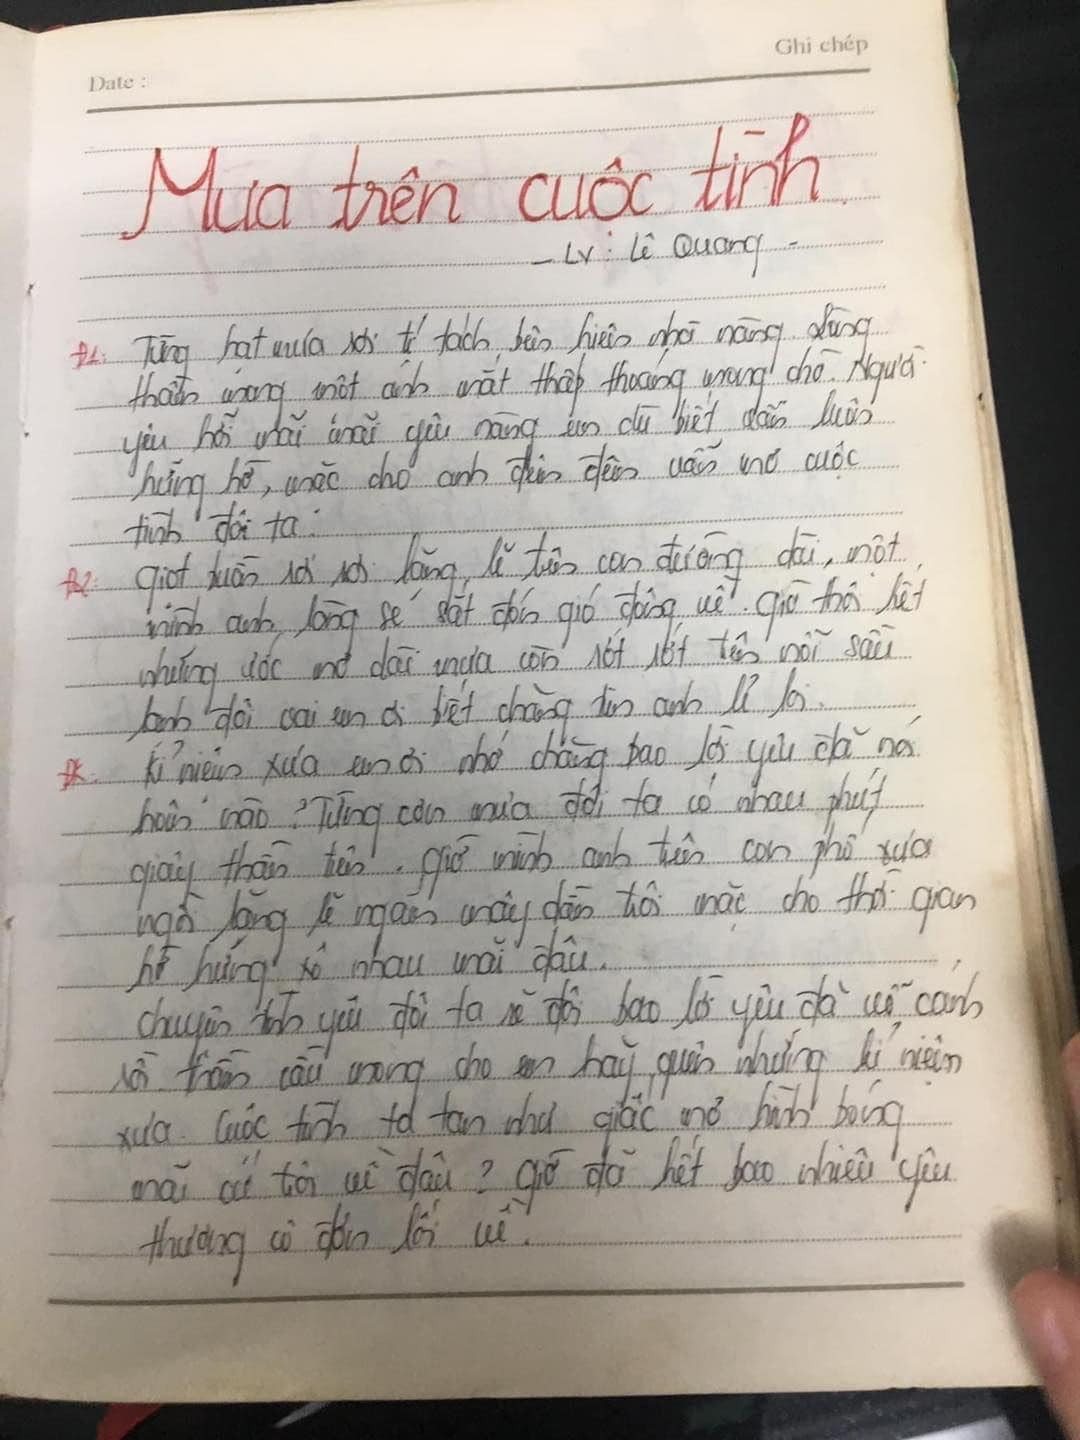 Ghi chép
Date :
Mưa trên cuộc tình
- LV : Lê Quang -
Đ1: Từng hạt mưa rơi tí tách bên hiên nhớ nàng. Lòng
thầm mong một ánh mắt thấp thoáng mong chờ. Người
yêu hỡi mãi mãi yêu nàng em dù biết dẫu luôn
hững hờ, mặc cho anh đêm đêm vẫn mơ cuộc
tình đôi ta.
Đ2: Giọt buồn rơi rơi lặng lẽ trên con đường dài, một
mình anh lòng se sắt đón gió đông về. giờ thôi hết
những ước mơ dài mưa còn rớt rớt trên nỗi sầu
đôi vai em ơi biết chăng tim anh lẻ loi.
ĐK: Kỉ niệm xưa em ơi nhớ chăng bao lời yêu đã nói
hôm nào ? Từng cơn mưa đôi ta có nhau phút
giây thần tiên. giờ mình anh trên con phố xưa
ngồi lặng lẽ ngắm mây dần trôi mặc cho thời gian
hờ hững xô nhau mãi đâu.
chuyện tình yêu đôi ta rẽ đôi bao lời yêu đã vỗ cánh
rồi thầm cầu mong cho em hãy quên những kỉ niệm
xưa. Cuộc tình ta tan như giấc mơ hình bóng
mãi cứ trôi về đâu ? giờ đã hết bao nhiêu yêu
thương cô đơn lối về.